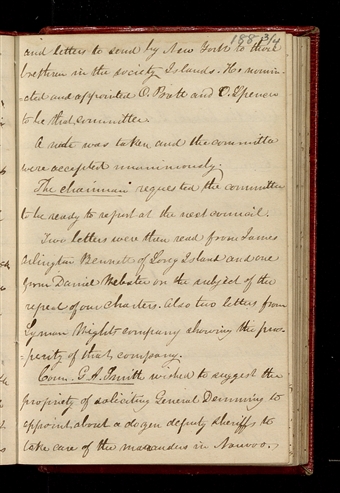 188 3/4
and letters to send by New York to their
brethren in the society Islands. He nomin-
=ated and appointed O. Pratt and O. Spencer
to be that committee.
A vote was taken and the committee
were accepted unanimously.
The chairman requested the committee
to be ready to report at the next council.
Two letters were then read from James
Arlington Bennett of Long Island and one
from Daniel Webster on the subject of the
repeal of our charters. Also two letters from
Lyman Wight's company showing the pros-
=perity of that company.
Coun. G. A. Smith wished to suggest the
propriety of soliciting General Demming to
appoint about a dozen deputy sheriffs to
take care of the marauders in Nauvoo.